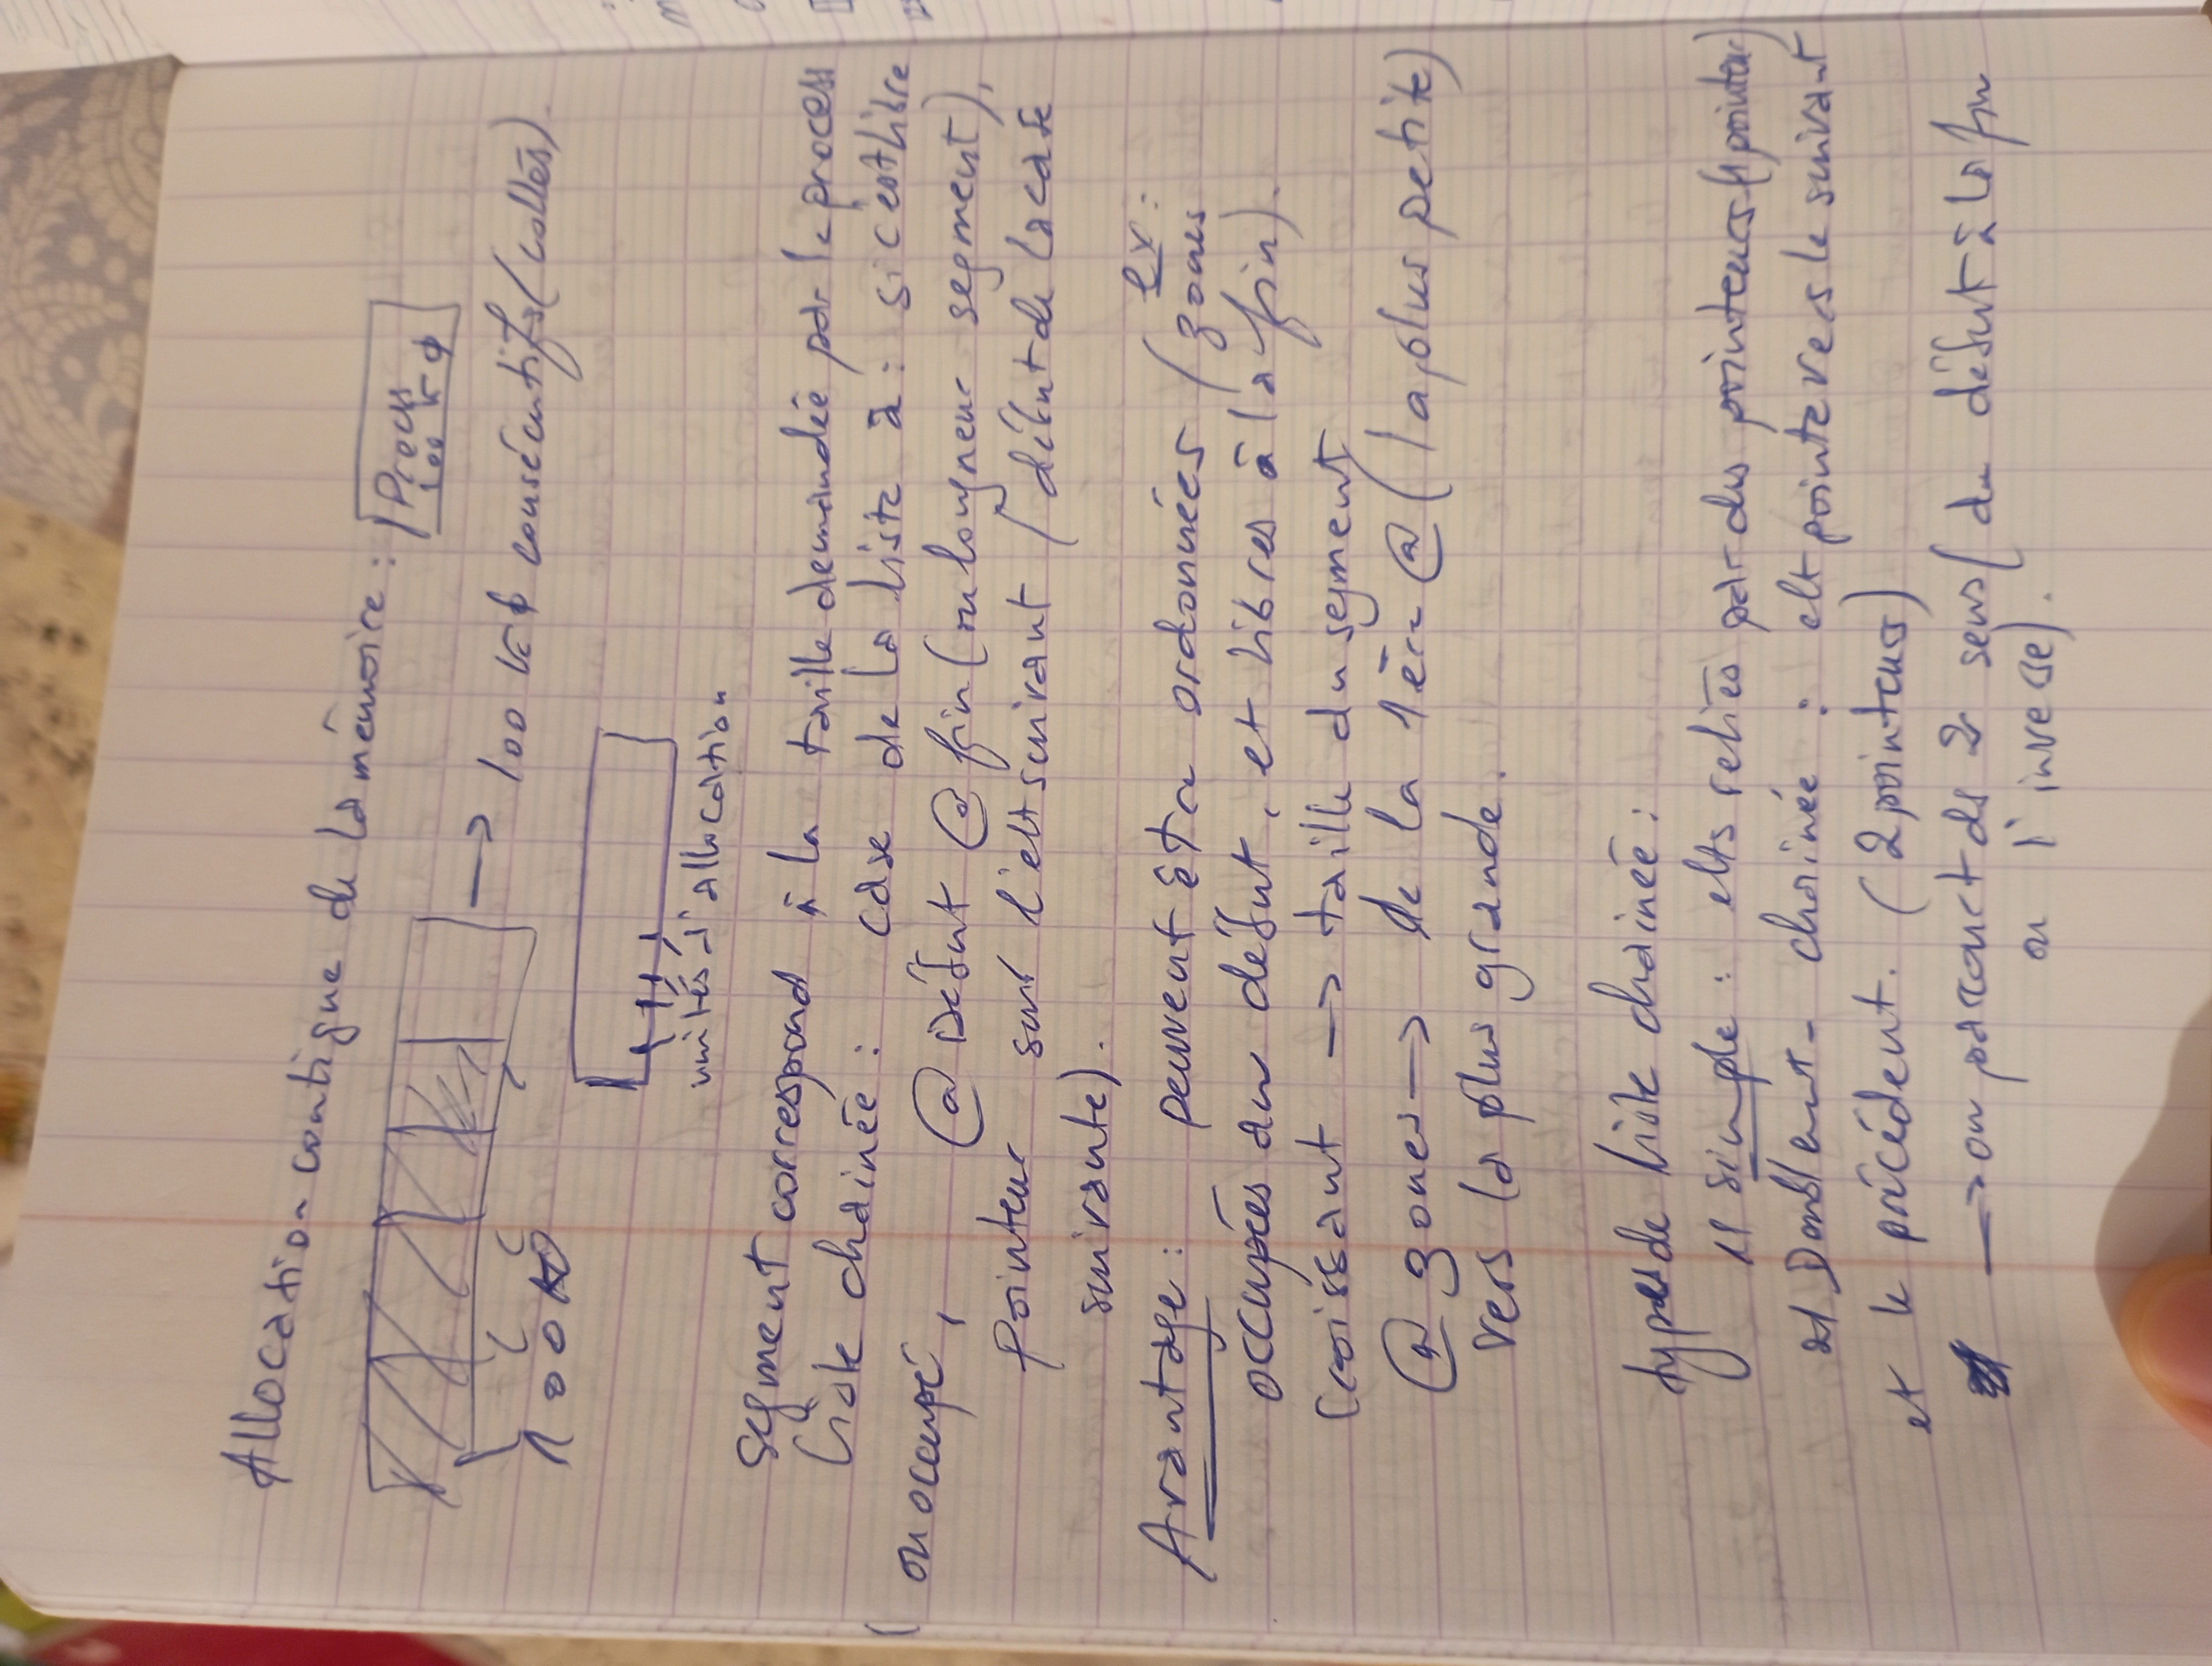 Allocation contigue de la mémoire :
Process
100 kο
→ 100 kο consécutifs (collés).
100 kο
unités d'allocation
Segment correspond à la taille demandée par le process
Liste chainée : case de la liste a : si c'est libre
ou occupé, @ Début @ fin (ou longueur segment),
Pointeur sur l'elt suivant / début de la case
suivante).
ex :
Avantage : peuvent être ordonnées (zones
occupées au début, et libres à la fin).
Croissant → taille du segment
@ zones → de la 1ère @ (la plus petite)
vers la plus grande.
types de liste chainée :
1/ simple : elts reliés par des pointeurs (1 pointeur)
2/ Doublement - chainée : elt pointe vers le suivant
et le précédent. (2 pointeurs)
→ on parcourt ds 2 sens (du début à la fin
ou l'inverse).